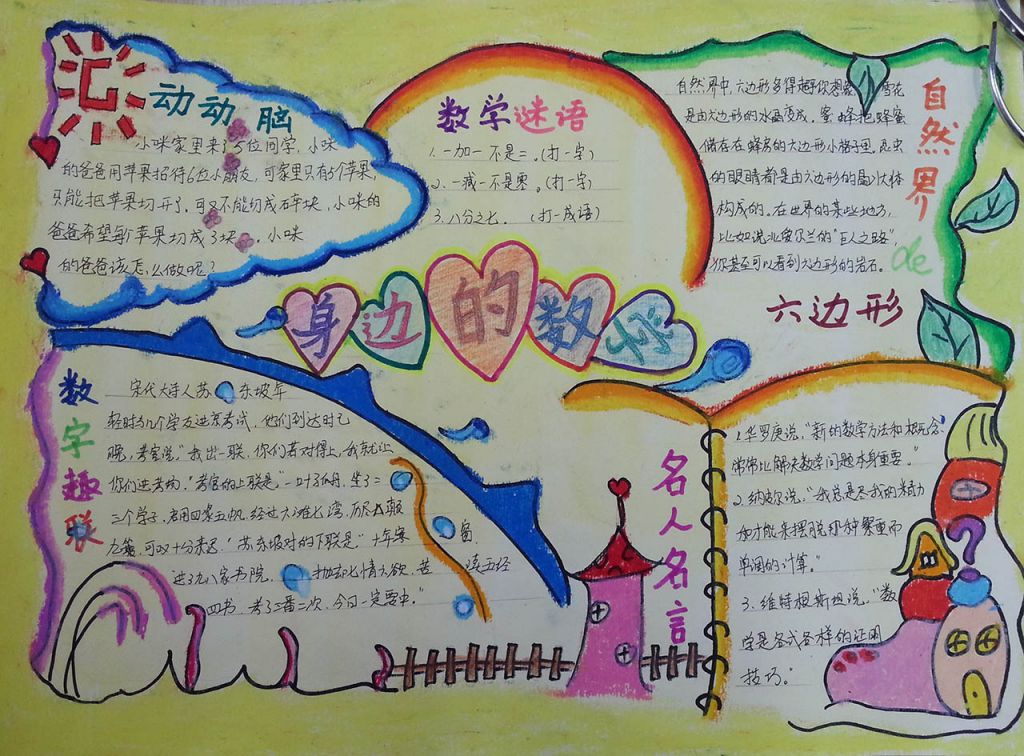 动动脑
小咪家里来了5位同学，小咪
的爸爸用苹果招待6位小朋友，可家里只有5个苹果，
只能把苹果切开了，可又不能切成碎块，小咪的
爸爸希望每个苹果切成3块。小咪
的爸爸该怎么做呢？
数学谜语
1.一加一不是二。（打一字）
2.一减一不是零。（打一字）
3.八分之七. （打一成语）
自然界
de
六边形
自然界中，六边形多得超乎你想象 雪花
是由六边形的水晶变成，蜜蜂把蜂蜜
储存在蜂房的六边形小格子里。昆虫
的眼睛都是由六边形的晶状体
构成的。在世界的某些地方，
比如说北爱尔兰的“巨人之路”
你甚至可以看到六边形的岩石。
身边的数学
数字趣联
宋代大诗人苏东坡年
轻时与几个学友进京考试，他们到达时已
晚，考官说“我出一联，你们若对得上，我就让
你们进考场，”考官的上联是“一叶孤舟，坐了二
三个学子，启用四桨五帆，经过六滩七湾，历尽八颠
九簸，可叹十分来迟。”苏东坡对的下联是“十年寒窗
进了九八家书院， 抛却七情六欲，苦读五经
四书，考了三番二次，今日一定要中。”
名人名言
1.华罗庚说，“新的数学方法和概念
常常比解决数学问题本身重要。”
2.纳皮尔说，“我总是尽我的精力
和才能来摆脱那种繁重而
单调的计算。”
3.维特根斯坦说，“数
学是各式各样的证明
技巧。”